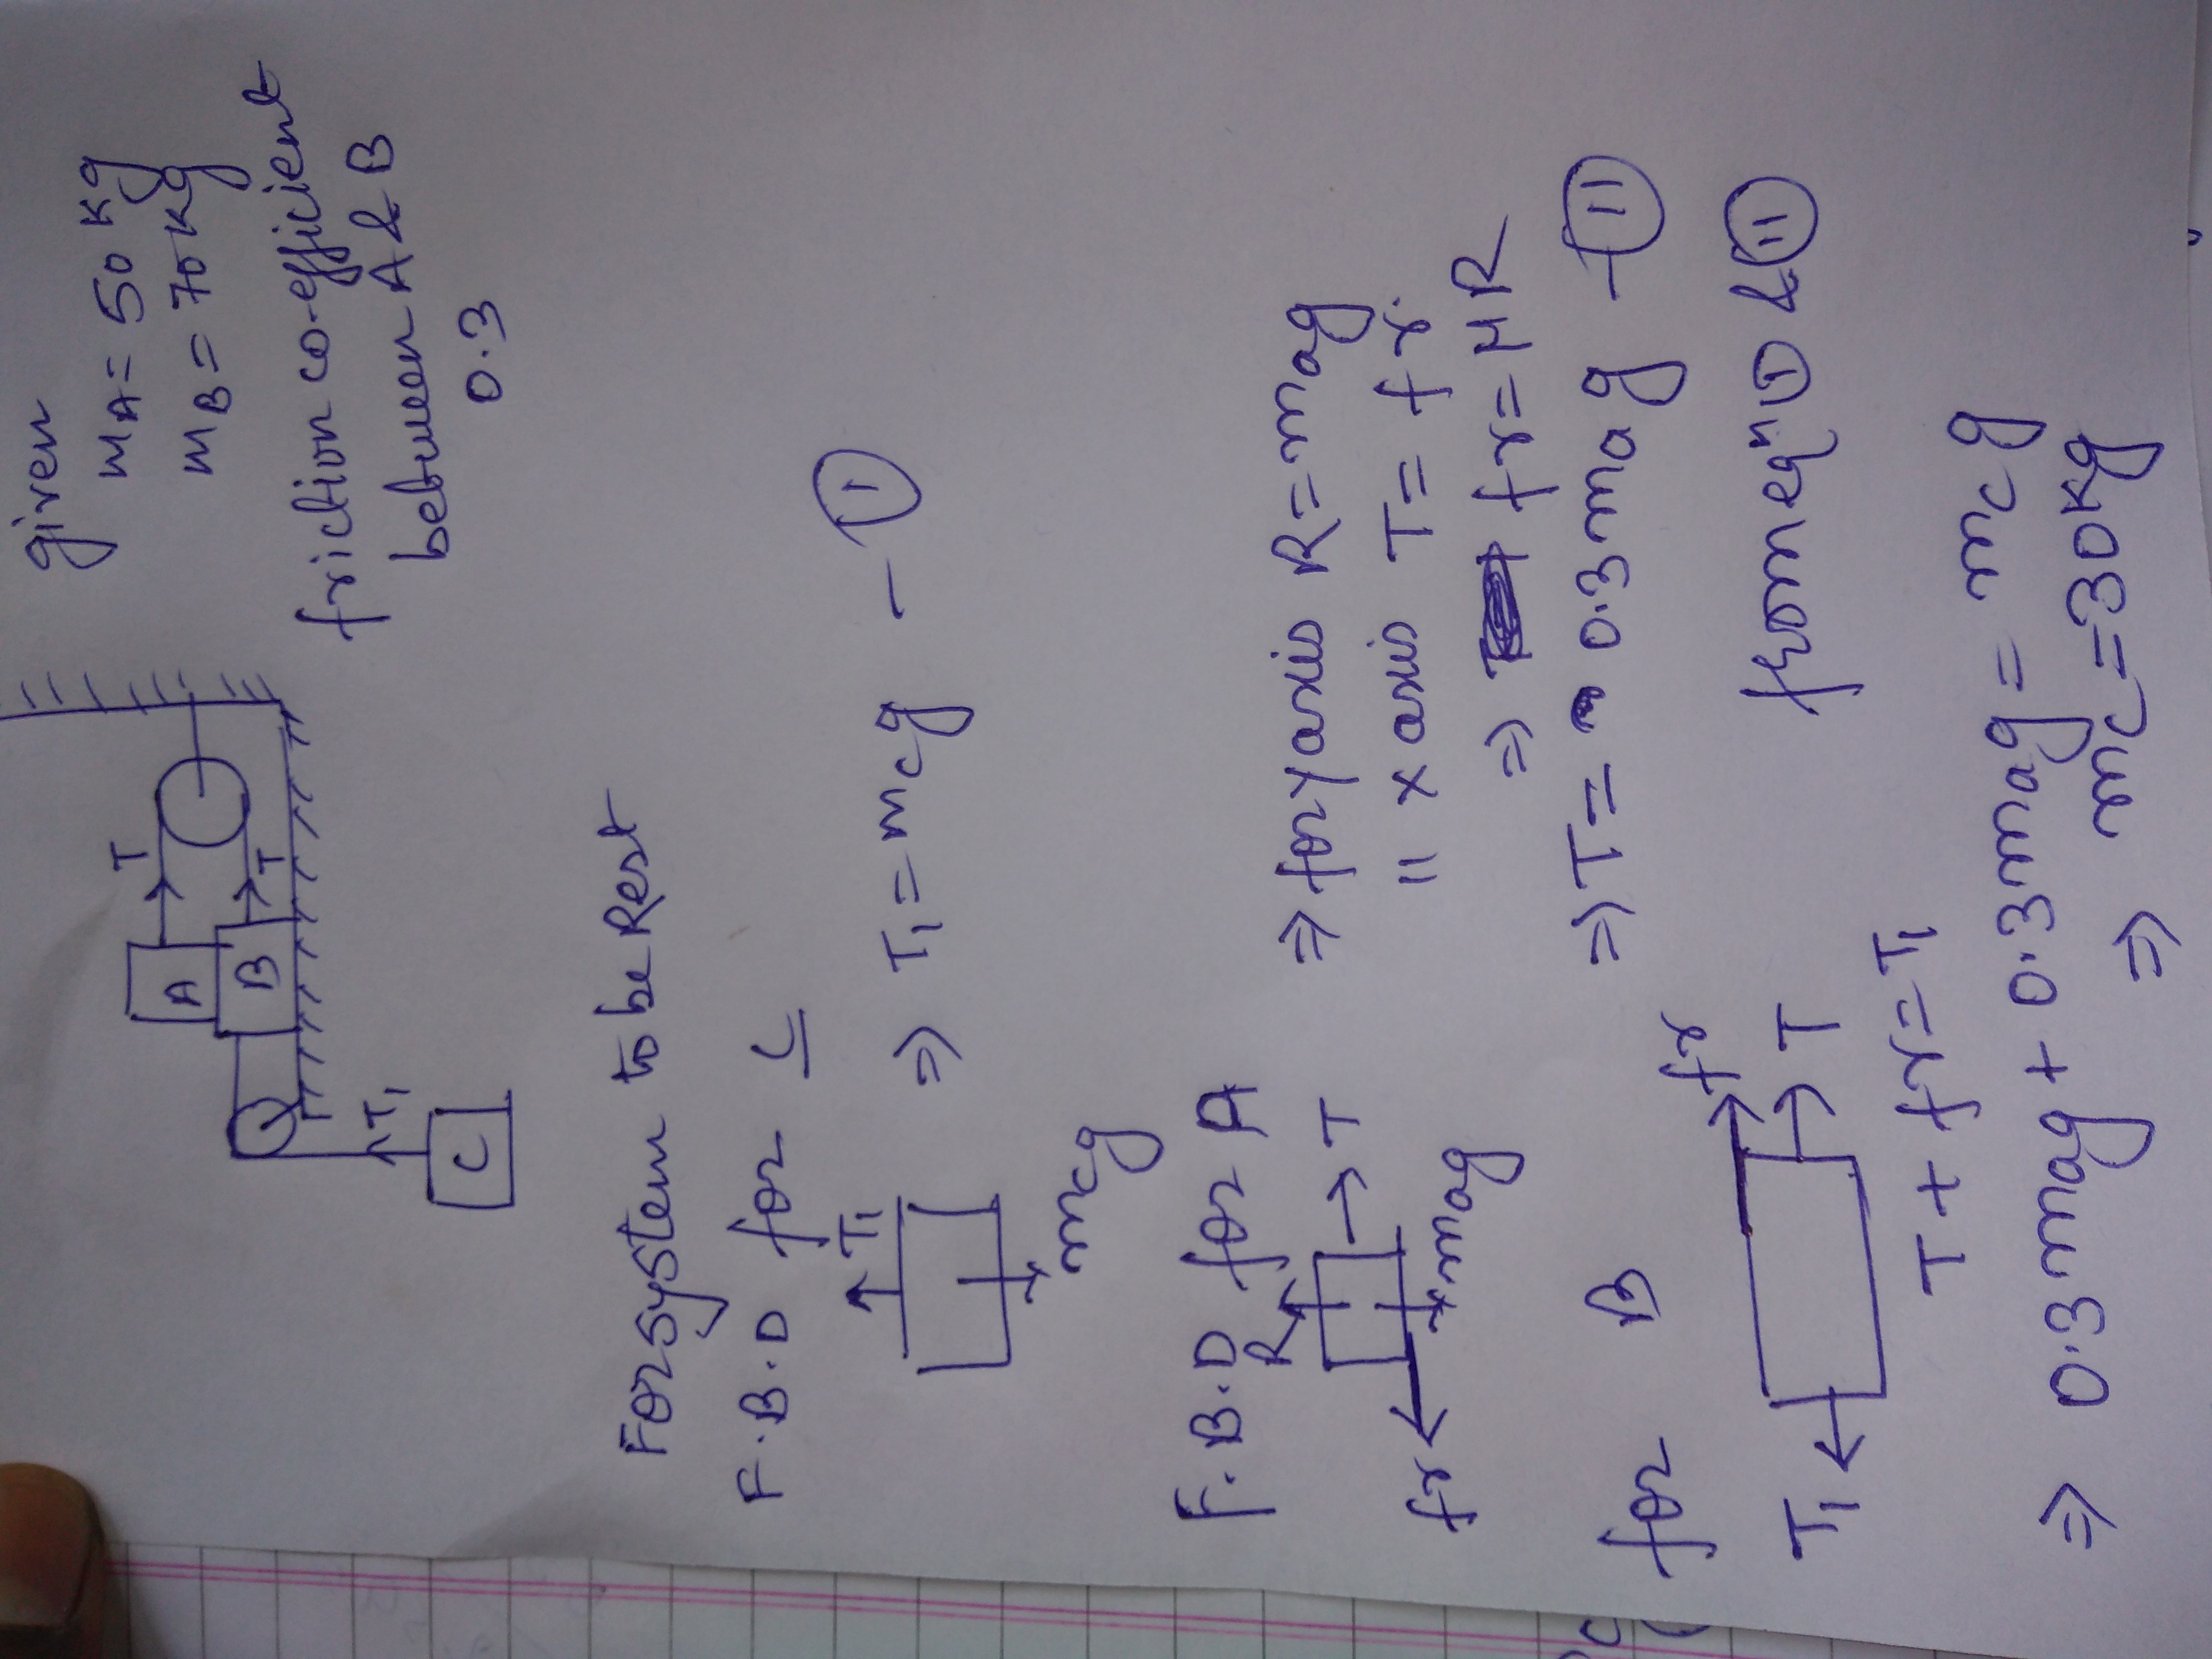 given
mA = 50 kg
mB = 70 kg
friction co-efficient
between A & B
0.3
A
B
T
T
T1
C
For system to be Rest
F.B.D for C
T1
mcg
⇒ T1 = mcg - ①
F.B.D for A
R
→ T
mag
fr
⇒ for y axis R = mag
" x axis T = fr.
⇒ fr = μR
⇒ T = 0.3 mag - ⑪
for B
fr
T
T1
T + fr = T1
from eqn ① & ⑪
⇒ 0.3 mag + 0.3 mag = mcg
⇒ mc = 30 kg